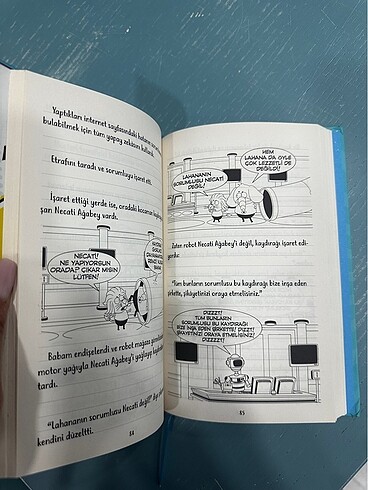 Yaptıkları internet sayfasındaki hatanın
bulabilmek için tüm yapay zekâsını kullandı.
Etrafını taradı ve sorumluyu işaret etti.
İşaret ettiği yerde ise, oradaki kocaman
şan Necati Ağabey vardı.
NECATİ!
NE YAPIYORSUN
ORADA? ÇIKAR MISIN
LÜTFEN!
Babam endişelendi ve robot mağaza
motor yağıyla Necati Ağabey'i yağlayıp
tardı.
"Lahananın sorumlusu Necati değil!"
kendini düzeltti.
64
LAHANANIN
SORUMLUSU NECATİ
DEĞİL!
HEM
LAHANA DA ÖYLE
ÇOK LEZZETLİ DE
DEĞİLDİ!
Zaten robot Necati Ağabey'i değil, kaydırağı işaret edi-
yordu.
"Tüm bunların sorumlusu bu kaydırağı bize inşa eden
şirkette, şikâyetinizi oraya etmelisiniz."
DIZZT!
TÜM BUNLARIN
SORUMLUSU BU KAYDIRAĞI
BİZE İNŞA EDEN ŞİRKETTE! DIZT!
ŞİKÂYETİNİZİ ORAYA ETMELİSİNİZ!
DIZZZT!
65